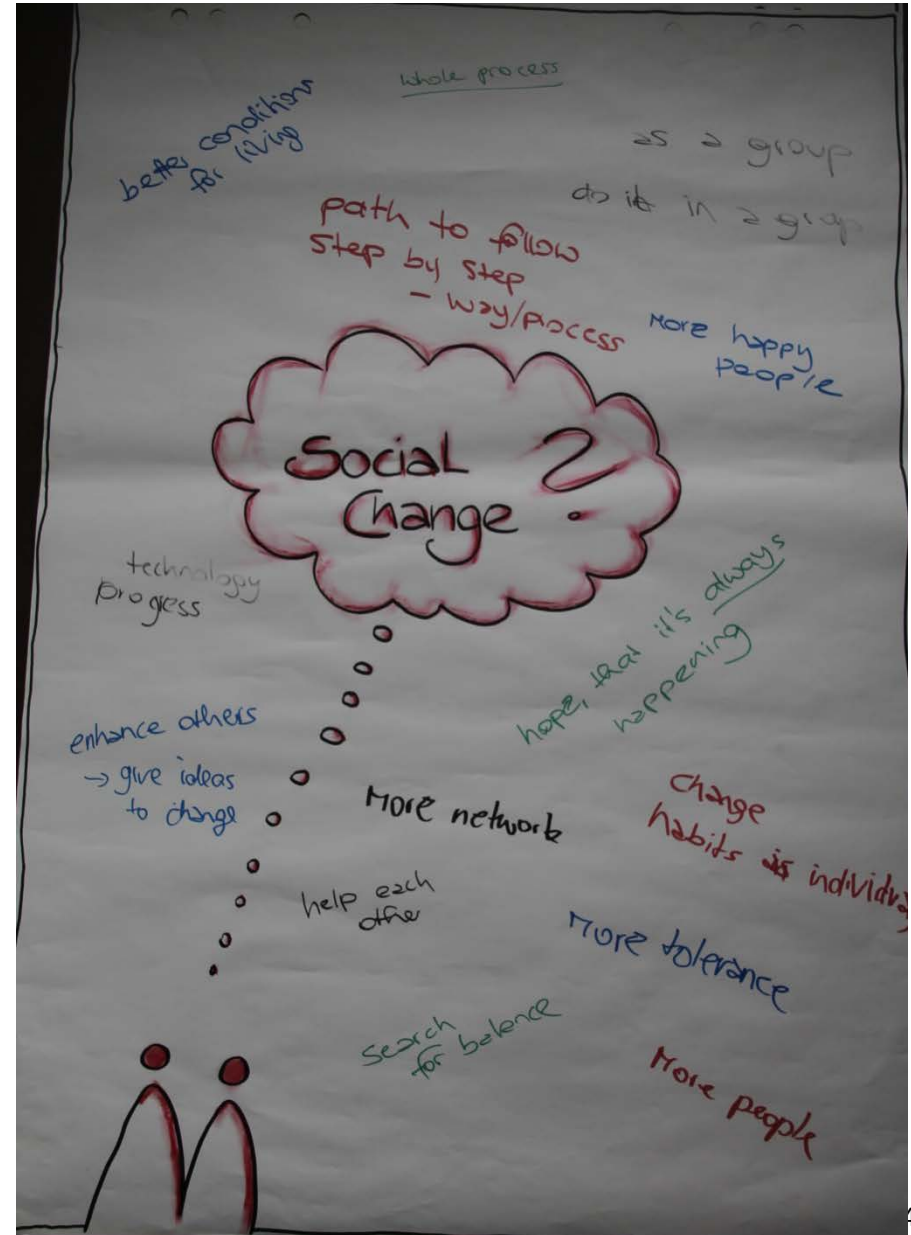 whole process
better conditions
for living
as a group
do it in a group
path to follow
step by step
- way/process
More happy
people
Social
Change ?
technology
progress
hope, that it's always
happening
enhance others
→ give ideas
to change
More network
Change
habits as individual
help each
other
More tolerance
search
for balence
More people